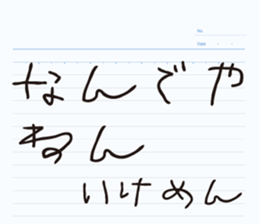 No.
Date
なんでや
ねん
いけめん